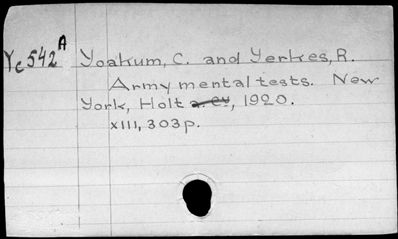 Yc542A Yoakum, C. and Yerkes, R.
Army mental tests. New
York, Holt, 1920.
xiii, 303p.